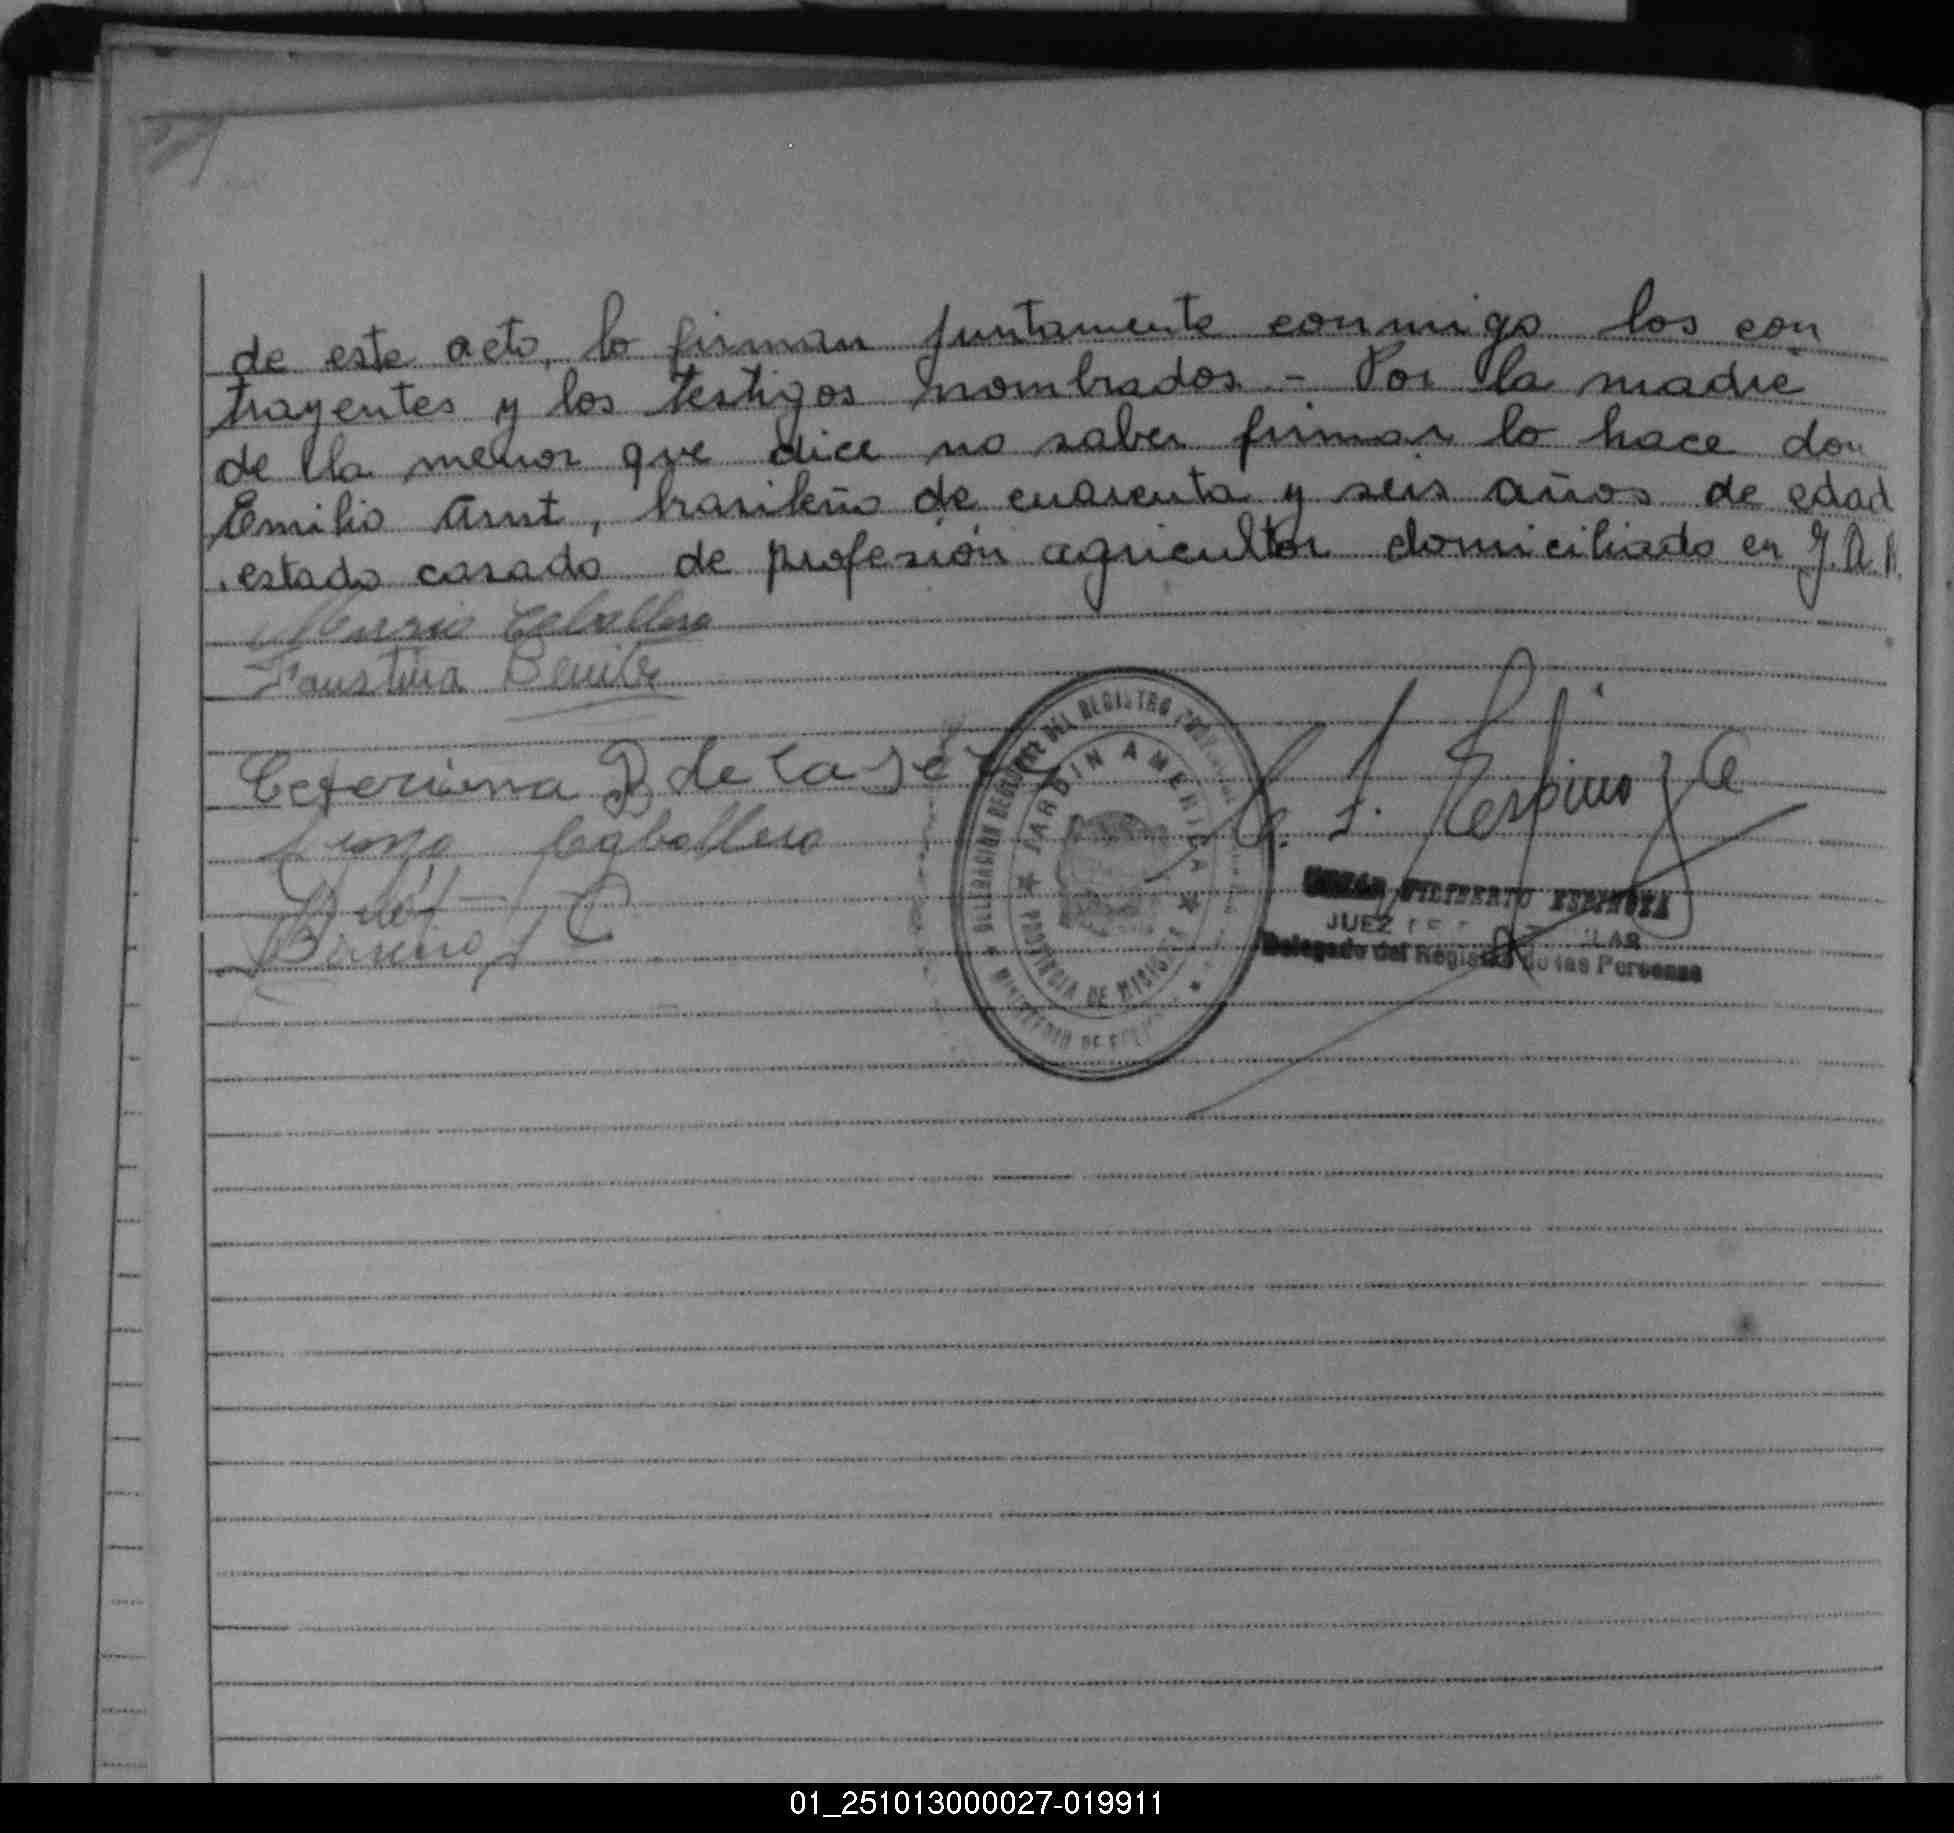 de este acto, lo firman juntamente conmigo los con
trayentes y los testigos nombrados - Por la madre
de la menor que dice no saber firmar lo hace don
Emilio Arnt, brasileño de cuarenta y seis años de edad
estado casado de profesión agricultor domiciliado en J.A.
Caballero
Faustina Benitez
Ceferina de la
Caballero
DELEGACION DEL REGISTRO
JARDIN AMERICA
PROVINCIA DE MISIONES
MINISTERIO DE
C. F. Espinoza
FILIBERTO ESPINOZA
JUEZ
Delegado del Registro de las Personas
01_251013000027-019911